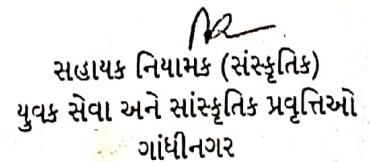 સહાયક નિયામક (સંસ્કૃતિક)
યુવક સેવા અને સાંસ્કૃતિક પ્રવૃત્તિઓ
ગાંધીનગર